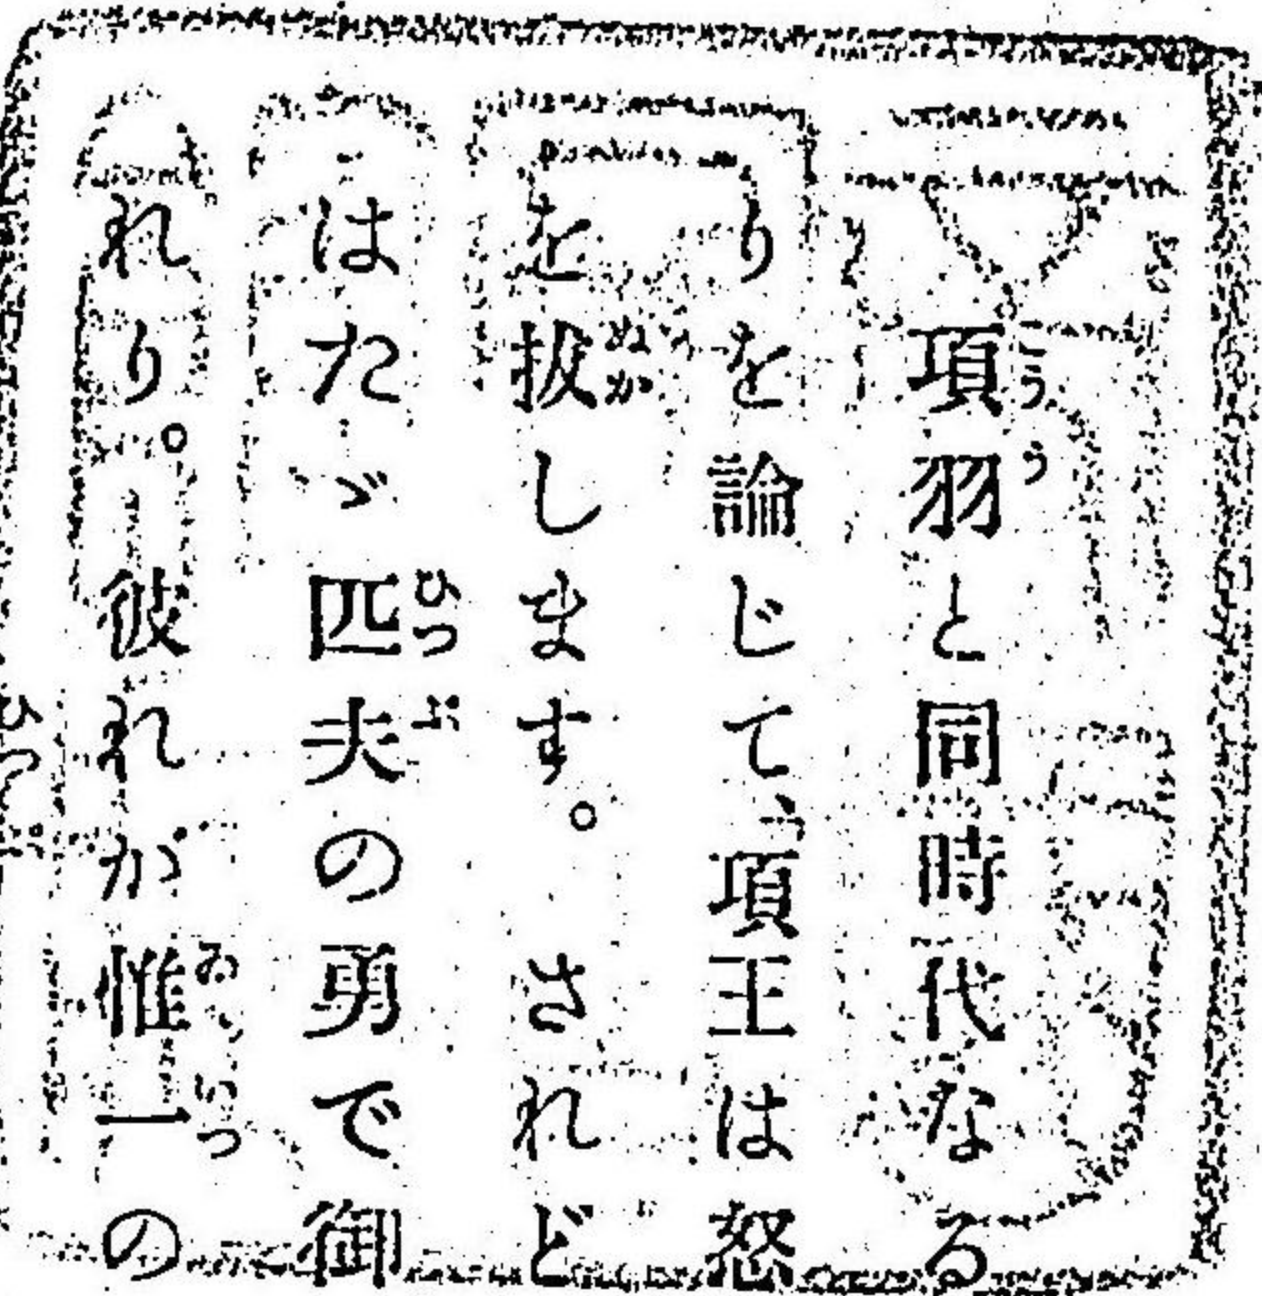 項羽と同時代なる
りを論じて、「項王は怒
を拔します。されど
はたゞ匹夫の勇で御
れり。彼れが惟一の